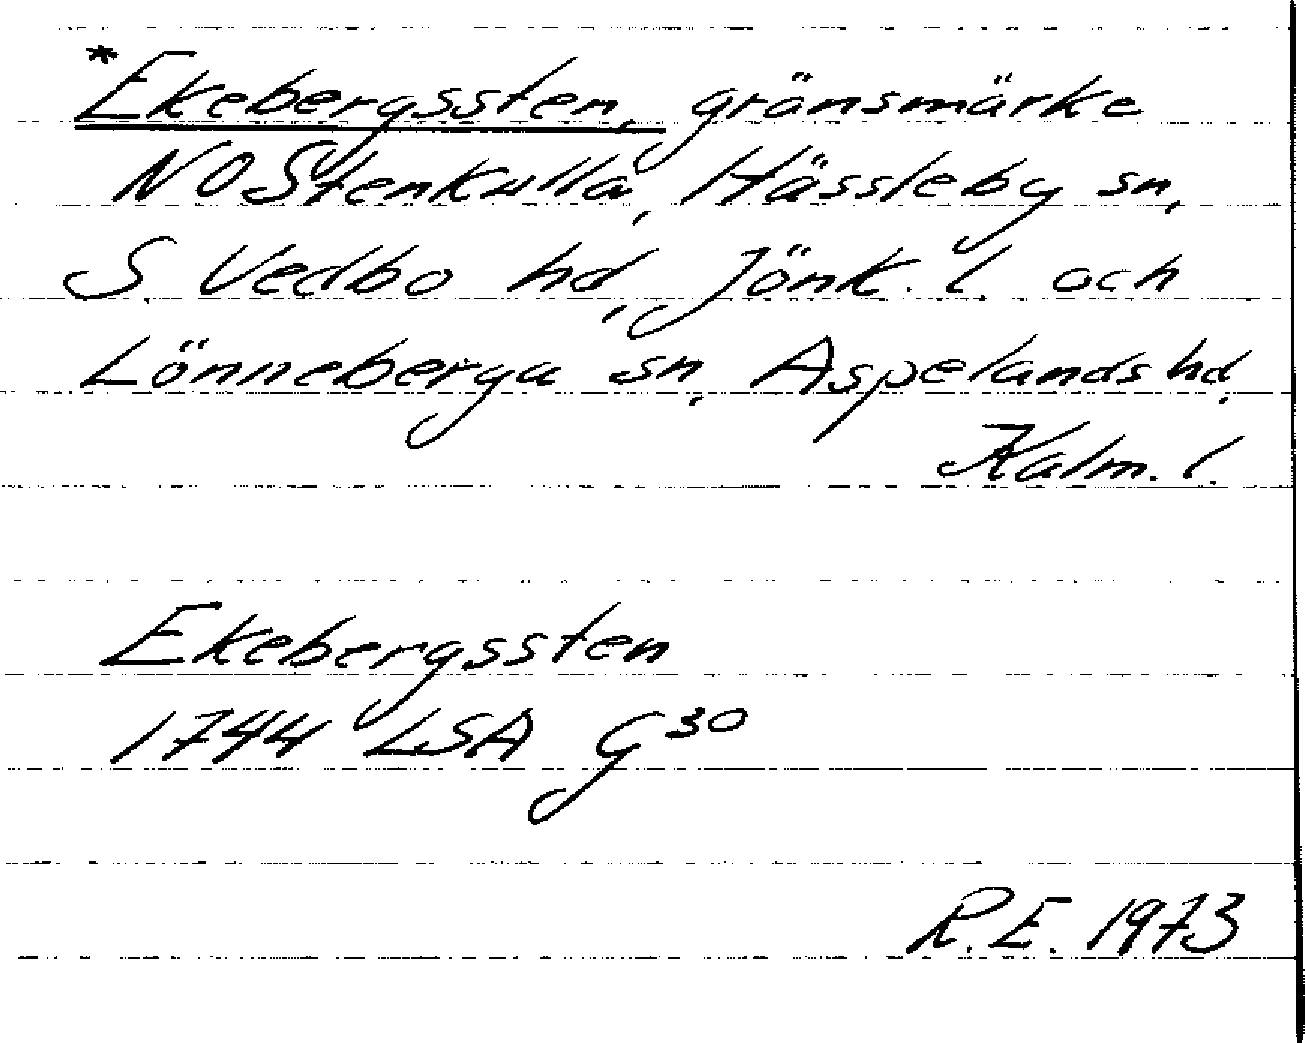 *Ekebergssten, gränsmärke
NO Stenkulla, Hässleby sn,
S. Vedbo hd, Jönk. l. och
Lönneberga sn, Aspelands hd,
Kalm. l.
Ekebergssten
1744 LSA G³⁰
R.E. 1973